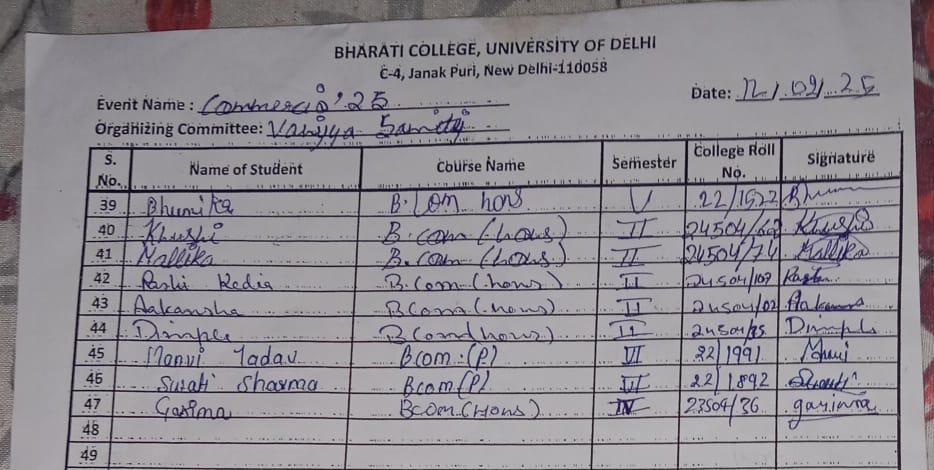 BHARATI COLLEGE, UNIVERSITY OF DELHI
C-4, Janak Puri, New Delhi-110058
Event Name : Commercio'25 Date: 12/02/25
Organizing Committee: Vanijya Samiti
S. No. Name of Student Course Name Semester College Roll No. Signature
39 Bhumika B.Com hons V 22/1522 Bhum
40 Khushi B.com (hous) II 24504/62 Khushi
41 Mallika B.com (hous) II 24504/74 Mallika
42 Rashi Kedia B.com (hons) II 24504/107
43 Aakansha Bcom (hons) II 24504/02
44 Dimple B(com)hons) II 24504/35 Dimple
45 Manvi Yadav Bcom.(P) VI 22/1991
46 Swati Sharma Bcom(P) VI 22/1892
47 Garima Bcom(Hons) IV 23504/36 garima
48
49